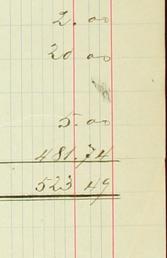 2. 00
20 00
5. 00
481.74
523 49